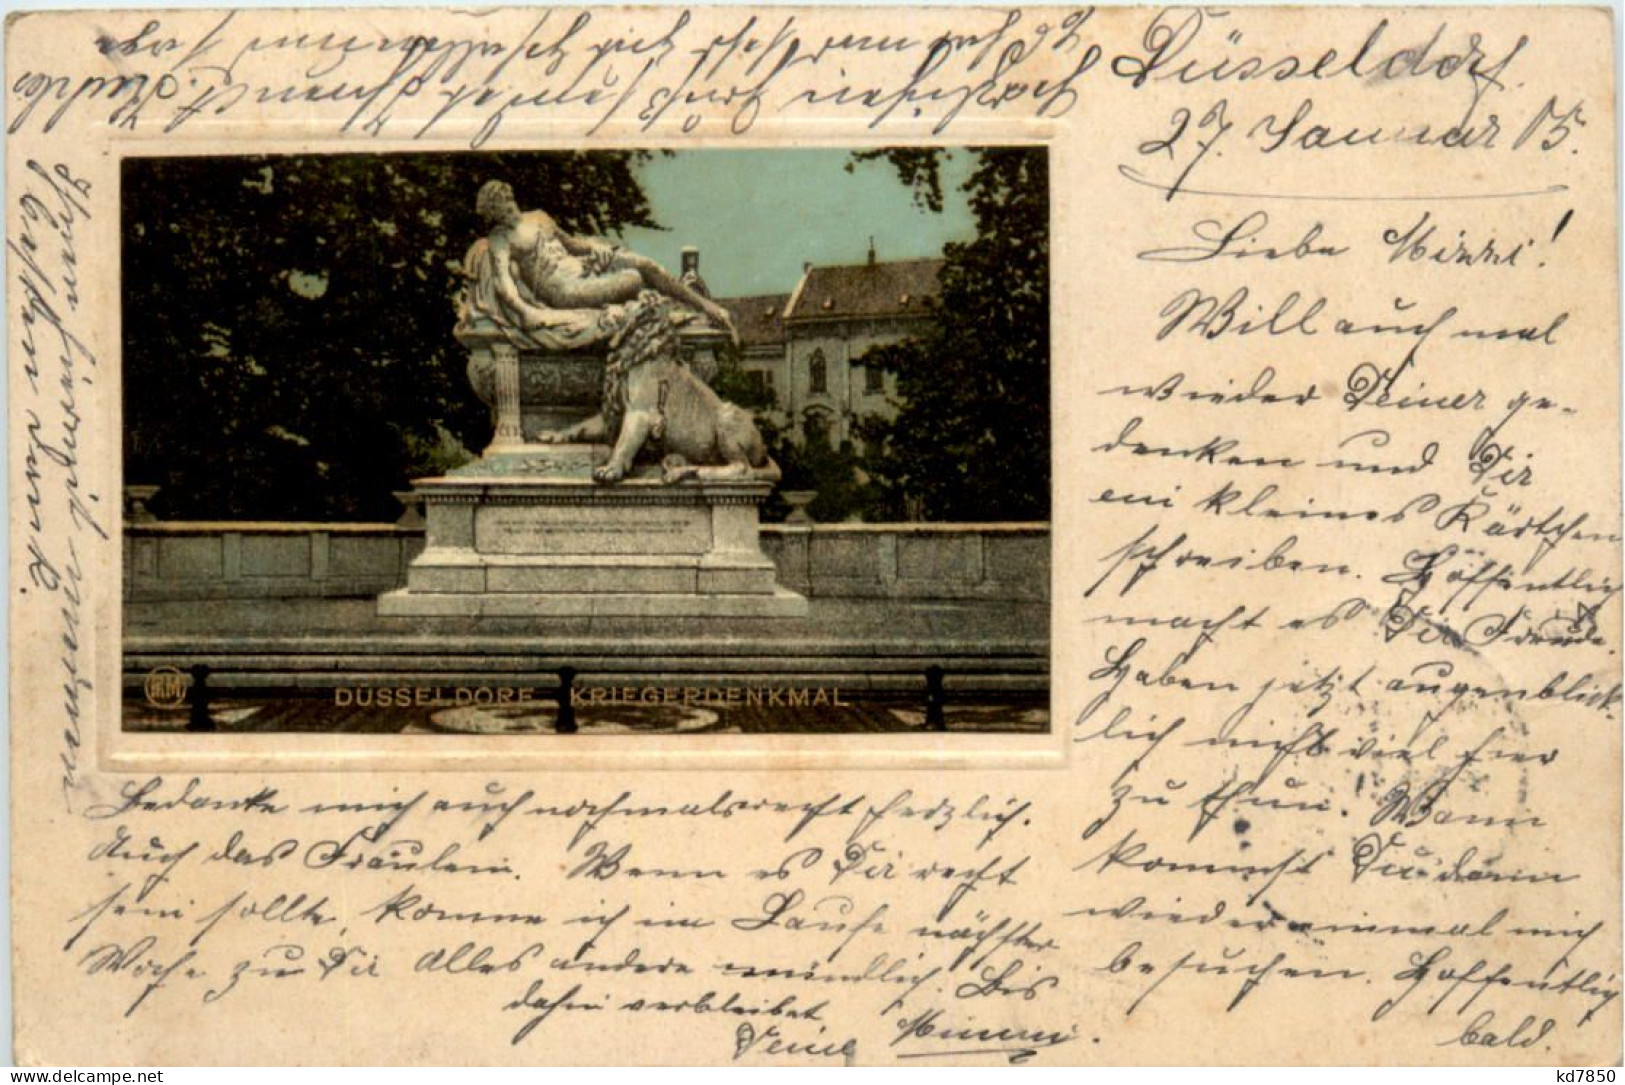 Düsseldorf.
27. Januar 05.
Liebe Mizzi!
Will auch mal
wieder Deiner ge-
denken und Dir
ein kleines Kärtchen
schreiben. Höffentlich
macht es Dir Freude.
Haben jetzt augenblick-
lich nicht viel hier
zu thun. Wann
kommst Du denn
wieder einmal mich
besuchen. Hoffentlich
bald.
Bedanke mich auch nochmals recht herzlich.
Auch das Fräulein. Wenn es Dir recht
sein sollte, komme ich im Laufe nächster
Woche zu Dir Alles andere mündlich. Bis
dahin verbleibet
Deine Mimmi.
DÜSSELDORF KRIEGERDENKMAL
kd7850